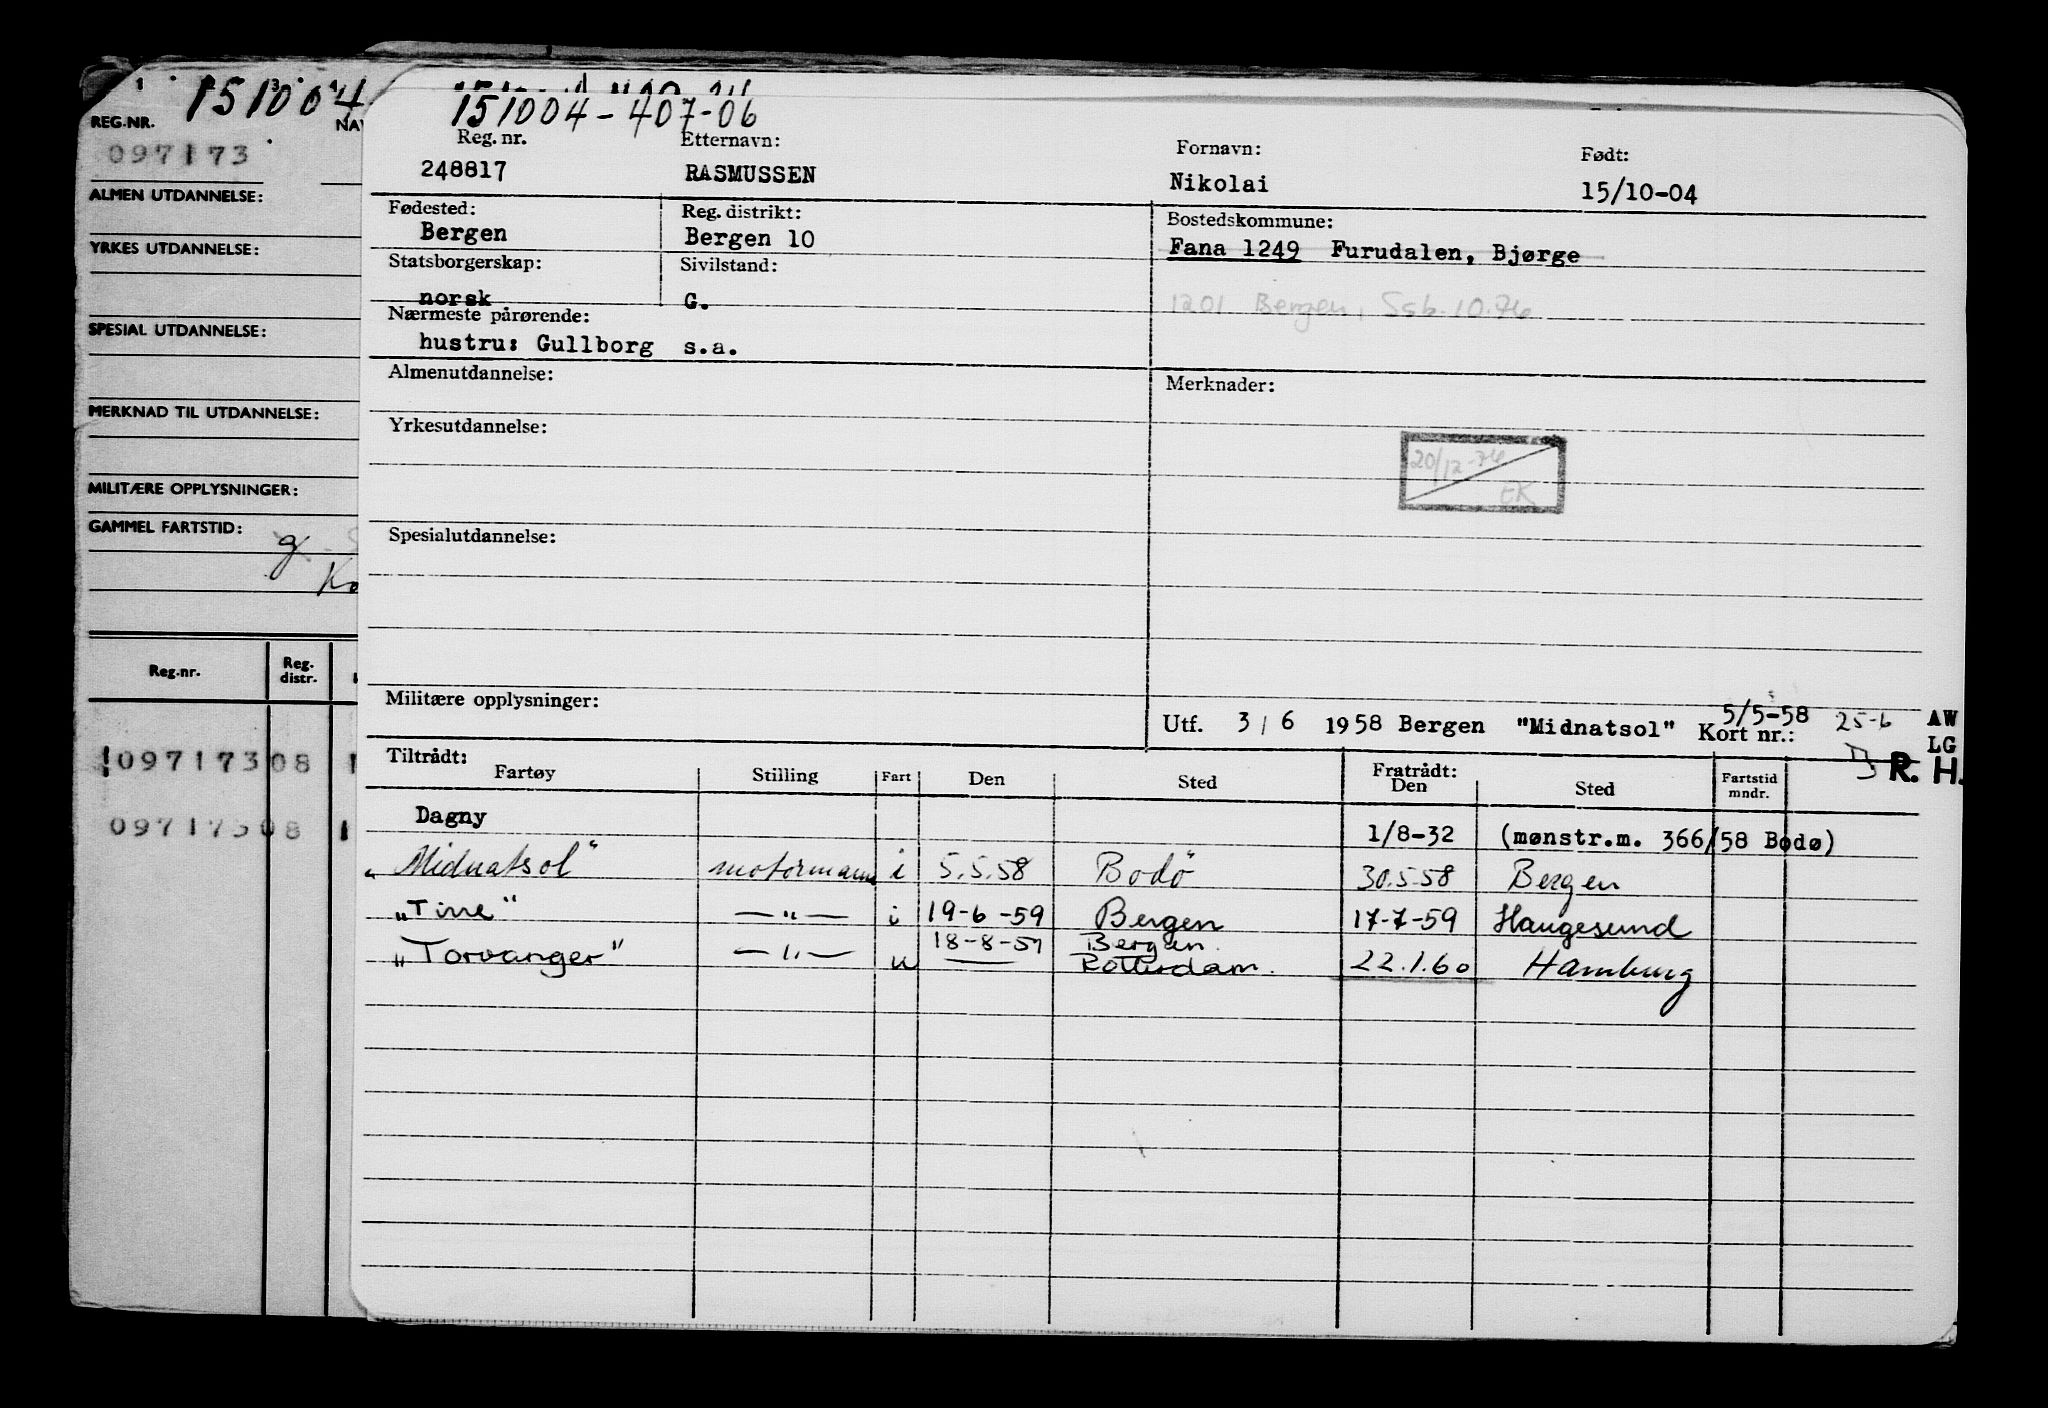 151004
REG.NR.
097173
ALMEN UTDANNELSE:
YRKES UTDANNELSE:
SPESIAL UTDANNELSE:
MERKNAD TIL UTDANNELSE:
MILITÆRE OPPLYSNINGER:
GAMMEL FARTSTID:
Reg.nr. Reg. distr.
09717308
09717308
151004-407-06
Reg. nr. Etternavn: Fornavn: Født:
248817 RASMUSSEN Nikolai 15/10-04
Fødested: Reg. distrikt: Bostedskommune:
Bergen Bergen 10 Fana 1249 Furudalen, Bjørge
Statsborgerskap: Sivilstand:
norsk G. 1201 Bergen, Ssb. 10.76
Nærmeste pårørende:
hustru: Gullborg s.a.
Almenutdannelse: Merknader:
Yrkesutdannelse:
20/12-76
EK
Spesialutdannelse:
Militære opplysninger:
Utf. 3/6 1958 Bergen "Midnatsol" Kort nr.: 5/5-58 25-6 AW
LG
R. H.
Tiltrådt: Fratrådt:
Fartøy Stilling Fart Den Sted Den Sted Fartstid mndr.
Dagny 1/8-32 (mønstr.m. 366/58 Bodø)
"Midnatsol" motormann i 5.5.58 Bodö 30.5.58 Bergen
"Tine" —"— i 19-6-59 Bergen 17-7-59 Haugesund
"Torvanger" —"— u 18-8-59 Bergen Rotterdam. 22.1.60 Hamburg